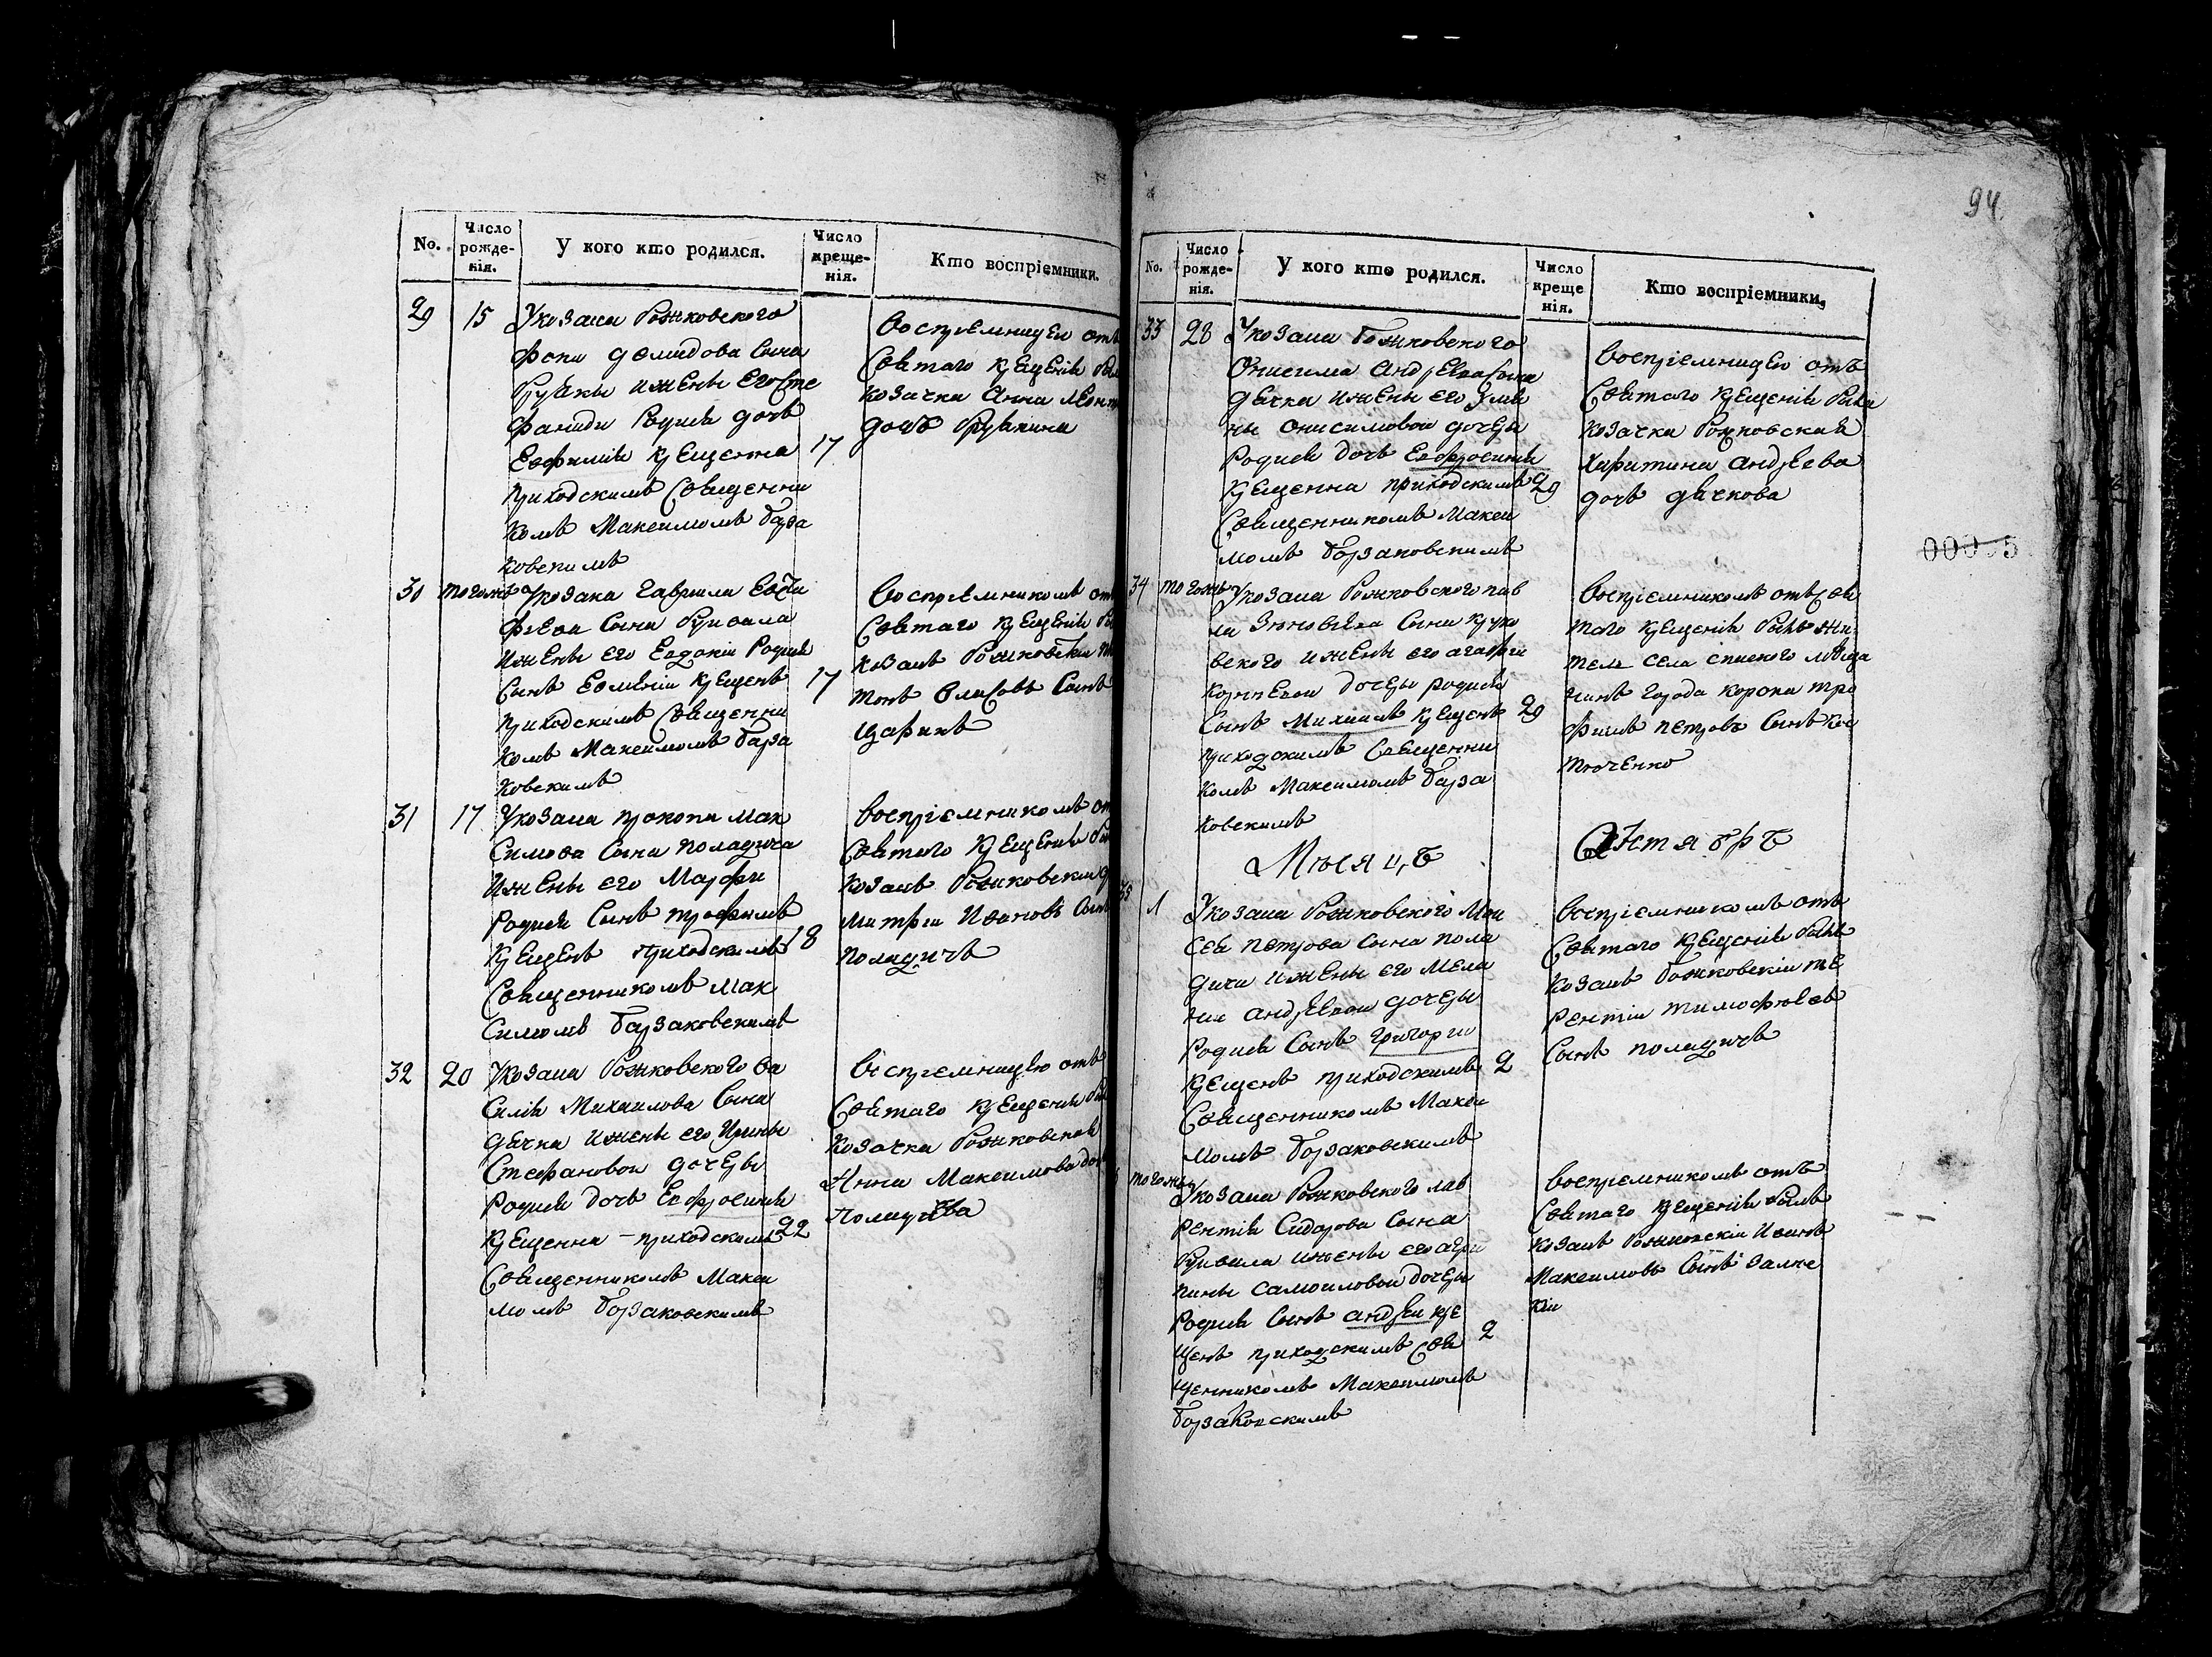 No.
Число рожде- нія.
У кого кто родился.
Число креще- нія.
Кто воспріемники.
29
15
У козака Рожковского
фоки демидова Сына
ижены его Сте
фаниди Родися дочь
Евфимія крещенна
17
приходскимъ Священни
комъ Максимомъ борза
ковскимъ
воспріемницею отъ
Святаго крещенія
козачка Анна
дочь
30
тогожъ
У козака гавриила
сына
ижены его Евдокіи Родися
Сынъ крещенъ
17
приходскимъ Священни
комъ Максимомъ борза
ковскимъ
воспріемникомъ
Святаго крещенія
козакъ Рожковскій
Власовъ Сынъ
31
17
У козака прокопи мак
симова Сына поладича
ижены его Марфи
Родися Сынъ трофимъ
крещенъ приходскимъ
18
Священникомъ мак
симомъ борзаковскимъ
воспріемникомъ
Святаго крещенія
козакъ Рожковскій
митрій Ивановъ Сынъ
поладичъ
32
20
У козака Рожковского ва
силія Михаилова Сына
дячка ижены его Ирины
Стефановои дочеры
Родися дочь Евфросинія
крещенна - приходскимъ
22
Священникомъ Макси
момъ борзаковскимъ
воспріемницею отъ
Святаго крещенія
козачка Рожковская
Анна Максимова
94
No.
Число рожде- нія.
У кого кто родился.
Число креще нія.
Кто воспріемники,
33
28
У козака Рожковского
Онисима Андреева Сына
дячка ижены его Улия
ны онисимовои дочеры
Родися дочь Евфросинія
крещенна приходскимъ
29
Священникомъ Макси
момъ борзаковскимъ
воспріемницею отъ
Святаго крещенія была
козачка Рожковская
Харитина андреева
дочь дячкова
34
тогожъ
У козака Рожковского пав
ла Сына
вского ижены его агафіи
корнѣевои дочеры родися
Сынъ михаилъ крещенъ
29
приходскимъ Священни
комъ Максимомъ борза
ковскимъ
воспріемникомъ отъ Свя
таго крещенія былъ жи
тель села спаского
города коропа тро
фимъ петровъ Сынъ
Мѣсяцъ
Сентябръ
35
1
У козака Рожковского Мои
сея петрова сына пола
дича ижены его Мела
ніи андреевои дочеры
Родися Сынъ Григорій
крещенъ приходскимъ
2
Священникомъ Макси
момъ борзаковскимъ
воспріемникомъ отъ
Святаго крещенія былъ
козакъ Рожковскій те
рентій тимофѣевъ
Сынъ поладичъ
тогожъ
У козака Рожковского лав
рентія Сидорова Сына
ижены его агри
пины самоиловои дочеры
Родися Сынъ андреи кре
щенъ приходскимъ Свя
2
щенникомъ Максимомъ
борзаковскимъ
воспріемникомъ отъ
Святаго крещенія былъ
козакъ Рожковскій Иванъ
Максимовъ Сынъ